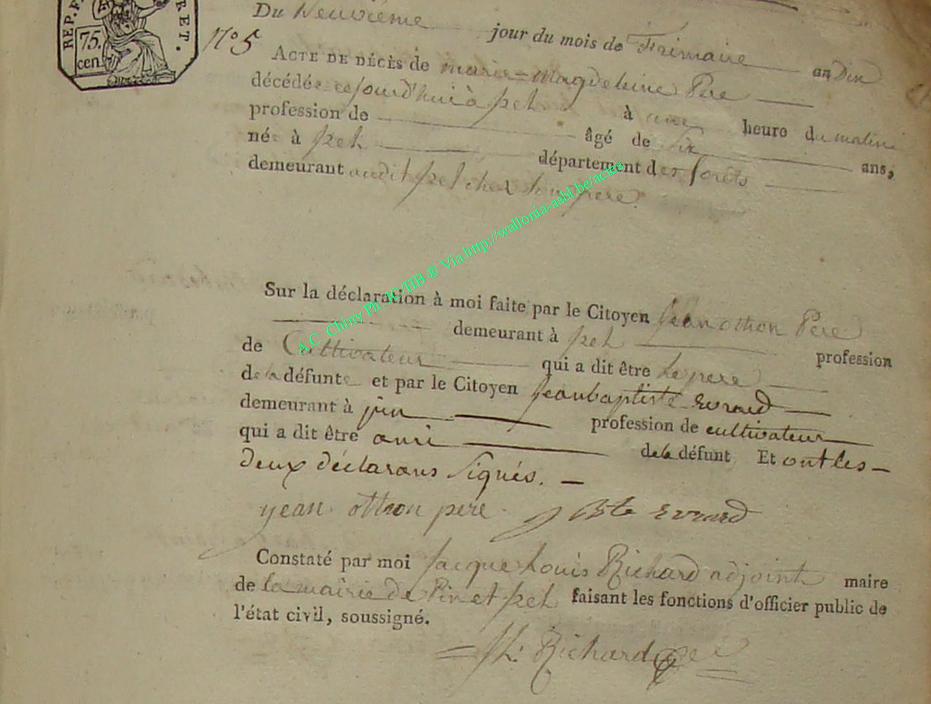 REP. F RET.
75. cen.
Du Neuvième jour du mois de Frimaire an Dix
N.o 5
ACTE DE DÉCÈS de marie-magdeleine Père
décédée cejourd'hui à
à une heure du matin
profession de âgé de six ans,
né à département des forêts
demeurant audit chez son père.
A.C. Chiny Via http://wallonia-asbl.be/actes
Sur la déclaration à moi faite par le Citoyen Jean othon Père
demeurant à profession
de Cultivateur qui a dit être Le père
de la défunte et par le Citoyen Jean baptiste Evrard
demeurant à pin profession de cultivateur
qui a dit être ami de la défunt Et ont les
deux déclarans signés.
yean othon pere J Bte Evrard
Constaté par moi Jacque Louis Richard adjoint maire
de la mairie de Pin et faisant les fonctions d'officier public de
l'état civil, soussigné.
Richard